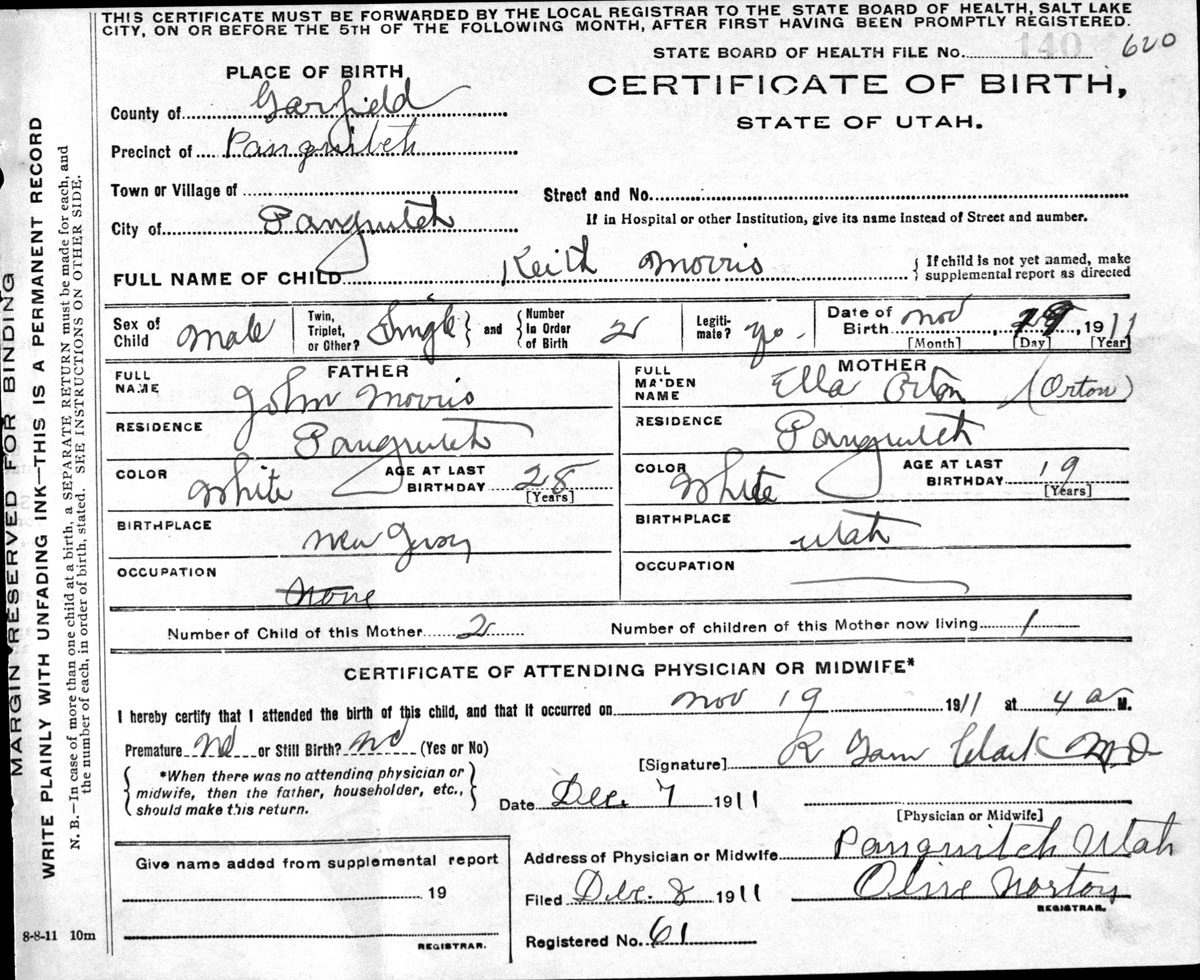 THIS CERTIFICATE MUST BE FORWARDED BY THE LOCAL REGISTRAR TO THE STATE BOARD OF HEALTH, SALT LAKE
CITY, ON OR BEFORE THE 5TH OF THE FOLLOWING MONTH, AFTER FIRST HAVING BEEN PROMPTLY REGISTERED.
STATE BOARD OF HEALTH FILE No. 140 620
PLACE OF BIRTH
CERTIFICATE OF BIRTH,
STATE OF UTAH.
County of Garfield
Precinct of Panguitch
Town or Village of
Street and No.
City of Panguitch
If in Hospital or other Institution, give its name instead of Street and number.
FULL NAME OF CHILD Keith Morris
If child is not yet named, make
supplemental report as directed
Sex of Child Male
Twin, Triplet, or Other? Single
and
Number in Order of Birth 2
Legitimate? yes
Date of Birth Nov , 19, 1911
[Month] [Day] [Year]
FATHER
FULL NAME John Morris
RESIDENCE Panguitch
COLOR White
AGE AT LAST BIRTHDAY 28
[Years]
BIRTHPLACE New Jersey
OCCUPATION None
MOTHER
FULL MAIDEN NAME Ella Orton (Orton)
RESIDENCE Panguitch
COLOR White
AGE AT LAST BIRTHDAY 19
[Years]
BIRTHPLACE Utah
OCCUPATION
Number of Child of this Mother 2
Number of children of this Mother now living 1
CERTIFICATE OF ATTENDING PHYSICIAN OR MIDWIFE*
I hereby certify that I attended the birth of this child, and that it occurred on Nov 19 1911 at 4 a M.
Premature No or Still Birth? No (Yes or No)
[Signature] R Garn Clark M D
*When there was no attending physician or
midwife, then the father, householder, etc.,
should make this return.
Date Dec. 7 1911
[Physician or Midwife]
Give name added from supplemental report
19
REGISTRAR.
Address of Physician or Midwife Panguitch Utah
Filed Dec. 8 1911 Olive Norton
REGISTRAR.
Registered No. 61
8-8-11 10m
MARGIN RESERVED FOR BINDING
WRITE PLAINLY WITH UNFADING INK—THIS IS A PERMANENT RECORD
N. B.—In case of more than one child at a birth, a SEPARATE RETURN must be made for each, and
the number of each, in order of birth, stated. SEE INSTRUCTIONS ON OTHER SIDE.